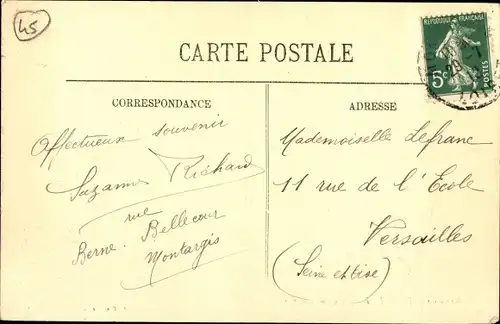 45
RÉPUBLIQUE FRANÇAISE
5c
29
CARTE POSTALE
CORRESPONDANCE
Affectueux souvenir
Suzanne Richard
rue
Bellecour
Berne. Montargis
ADRESSE
Mademoiselle Lefranc
11 rue de l'Ecole
Versailles
(Seine et Oise)